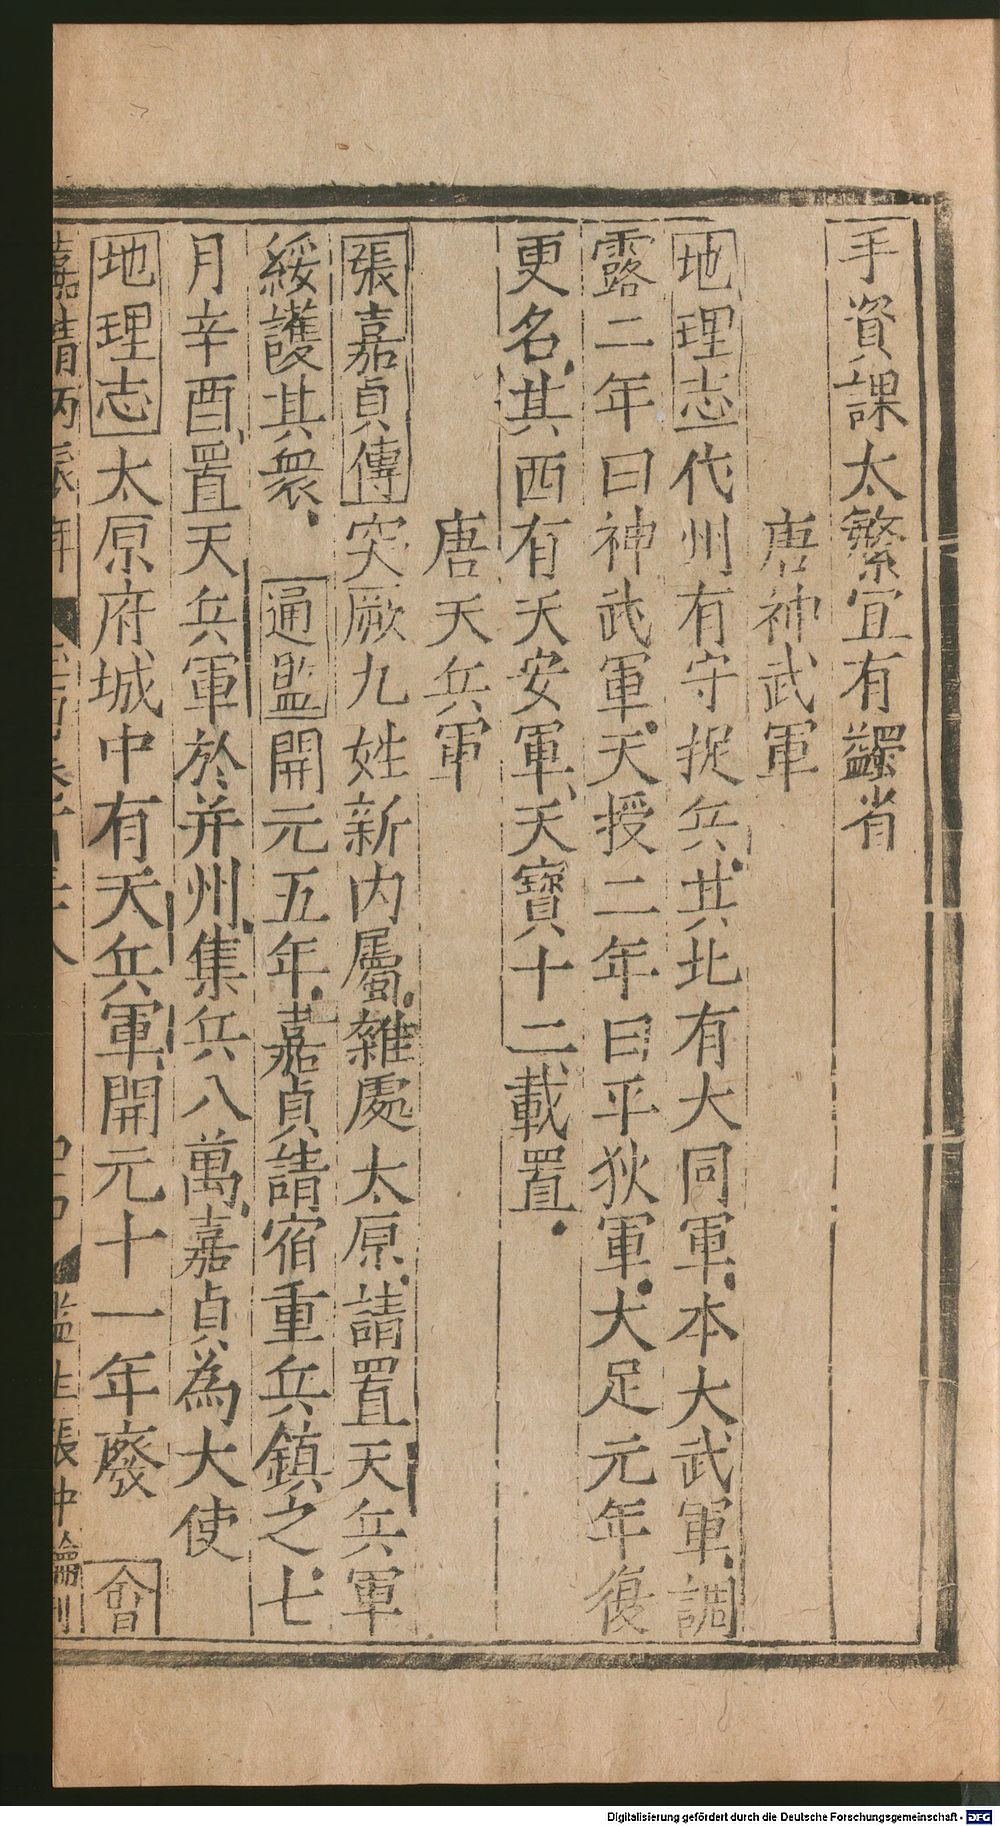 手資課太繁宜有蠲省
唐神武軍
地理志代州有守捉兵其北有大同軍本大武軍調
露二年曰神武軍天授二年曰平狄軍大足元年復
更名其西有天安軍天寶十二載置
唐天兵軍
張嘉貞傳突厥九姓新內屬雜處太原請置天兵軍
綏護其衆 通鑑開元五年嘉貞請宿重兵鎮之七
月辛酉置天兵軍於并州集兵八萬嘉貞為大使
地理志太原府城中有天兵軍開元十一年廢 會
嘉靖丙辰年 監生張中瀹刊
Digitalisierung gefördert durch die Deutsche Forschungsgemeinschaft - DFG